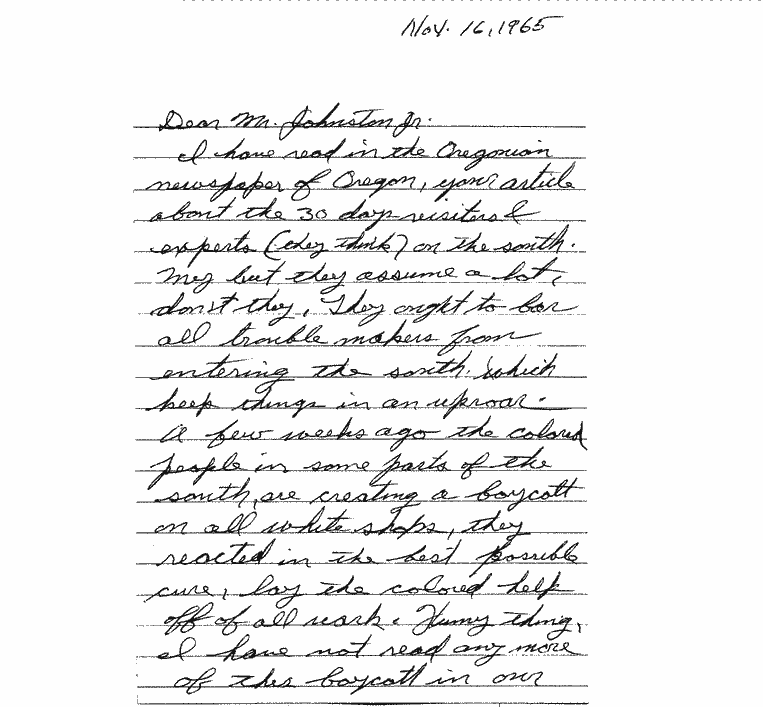 Nov. 16, 1965
Dear Mr. Johnston Jr.
I have read in the Oregonian
newspaper of Oregon, your article
about the 30 day visitors &
experts (they think) on the south.
My but they assume a lot,
don't they, They ought to bar
all trouble makers from
entering the south. which
keep things in an uproar.
A few weeks ago the colored
people in some parts of the
south, are creating a boycott
on all white shops, they
reacted in the best possible
cure, lay the colored help
off of all work. Funny thing,
I have not read any more
of this boycott in our